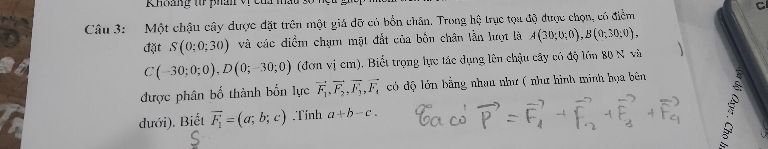 Khoảng tứ phân vị của mẫu số liệu ghép nhóm
Câu 3: Một chậu cây được đặt trên một giá đỡ có bốn chân. Trong hệ trục tọa độ được chọn, có điểm
đặt S(0;0;30) và các điểm chạm mặt đất của bốn chân lần lượt là A(30;0;0), B(0;30;0),
C(-30;0;0), D(0;-30;0) (đơn vị cm). Biết trọng lực tác dụng lên chậu cây có độ lớn 80 N và
được phân bố thành bốn lực F₁, F₂, F₃, F₄ có độ lớn bằng nhau như ( như hình minh họa bên
dưới). Biết F₁ = (a; b; c) .Tính a+b-c.
Ta có P = F₁ + F₂ + F₃ + F₄
S